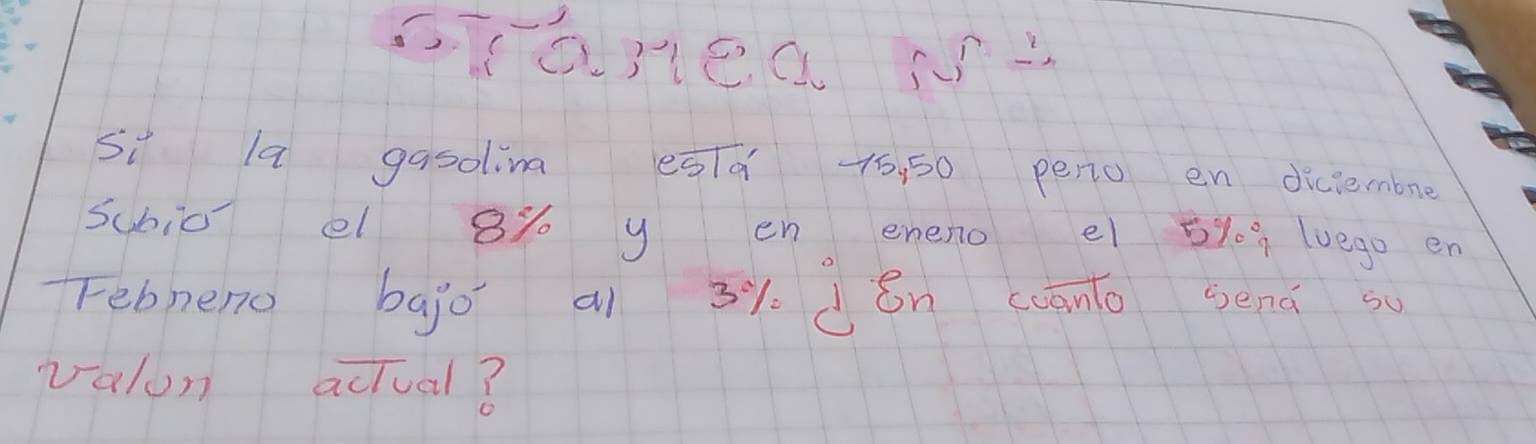 Tarea Nº 1
Si la gasolina está 15,50 pero en diciembre
subió el 8% y en enero el 5%, luego en
Febrero bajó al 3% ¿En cuánto será su
valor actual?